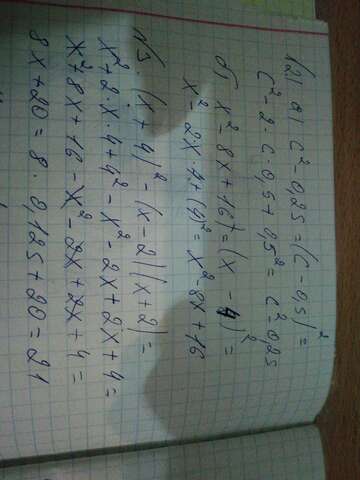 №2) а) c² - 0,25 = (c - 0,5)² =
c² - 2 · c · 0,5 + 0,5² = c² 0,25
б) x² - 8x + 16 = (x - 4)² =
x² - 2x · 4 + (4)² = x² - 8x + 16
№3. (x + 4)² - (x - 2)(x + 2) =
x² + 2 · x · 4 + 4² - x² - 2x + 2x + 4 =
x² + 8x + 16 - x² - 2x + 2x + 4 =
8x + 20 = 8 · 0,125 + 20 = 21